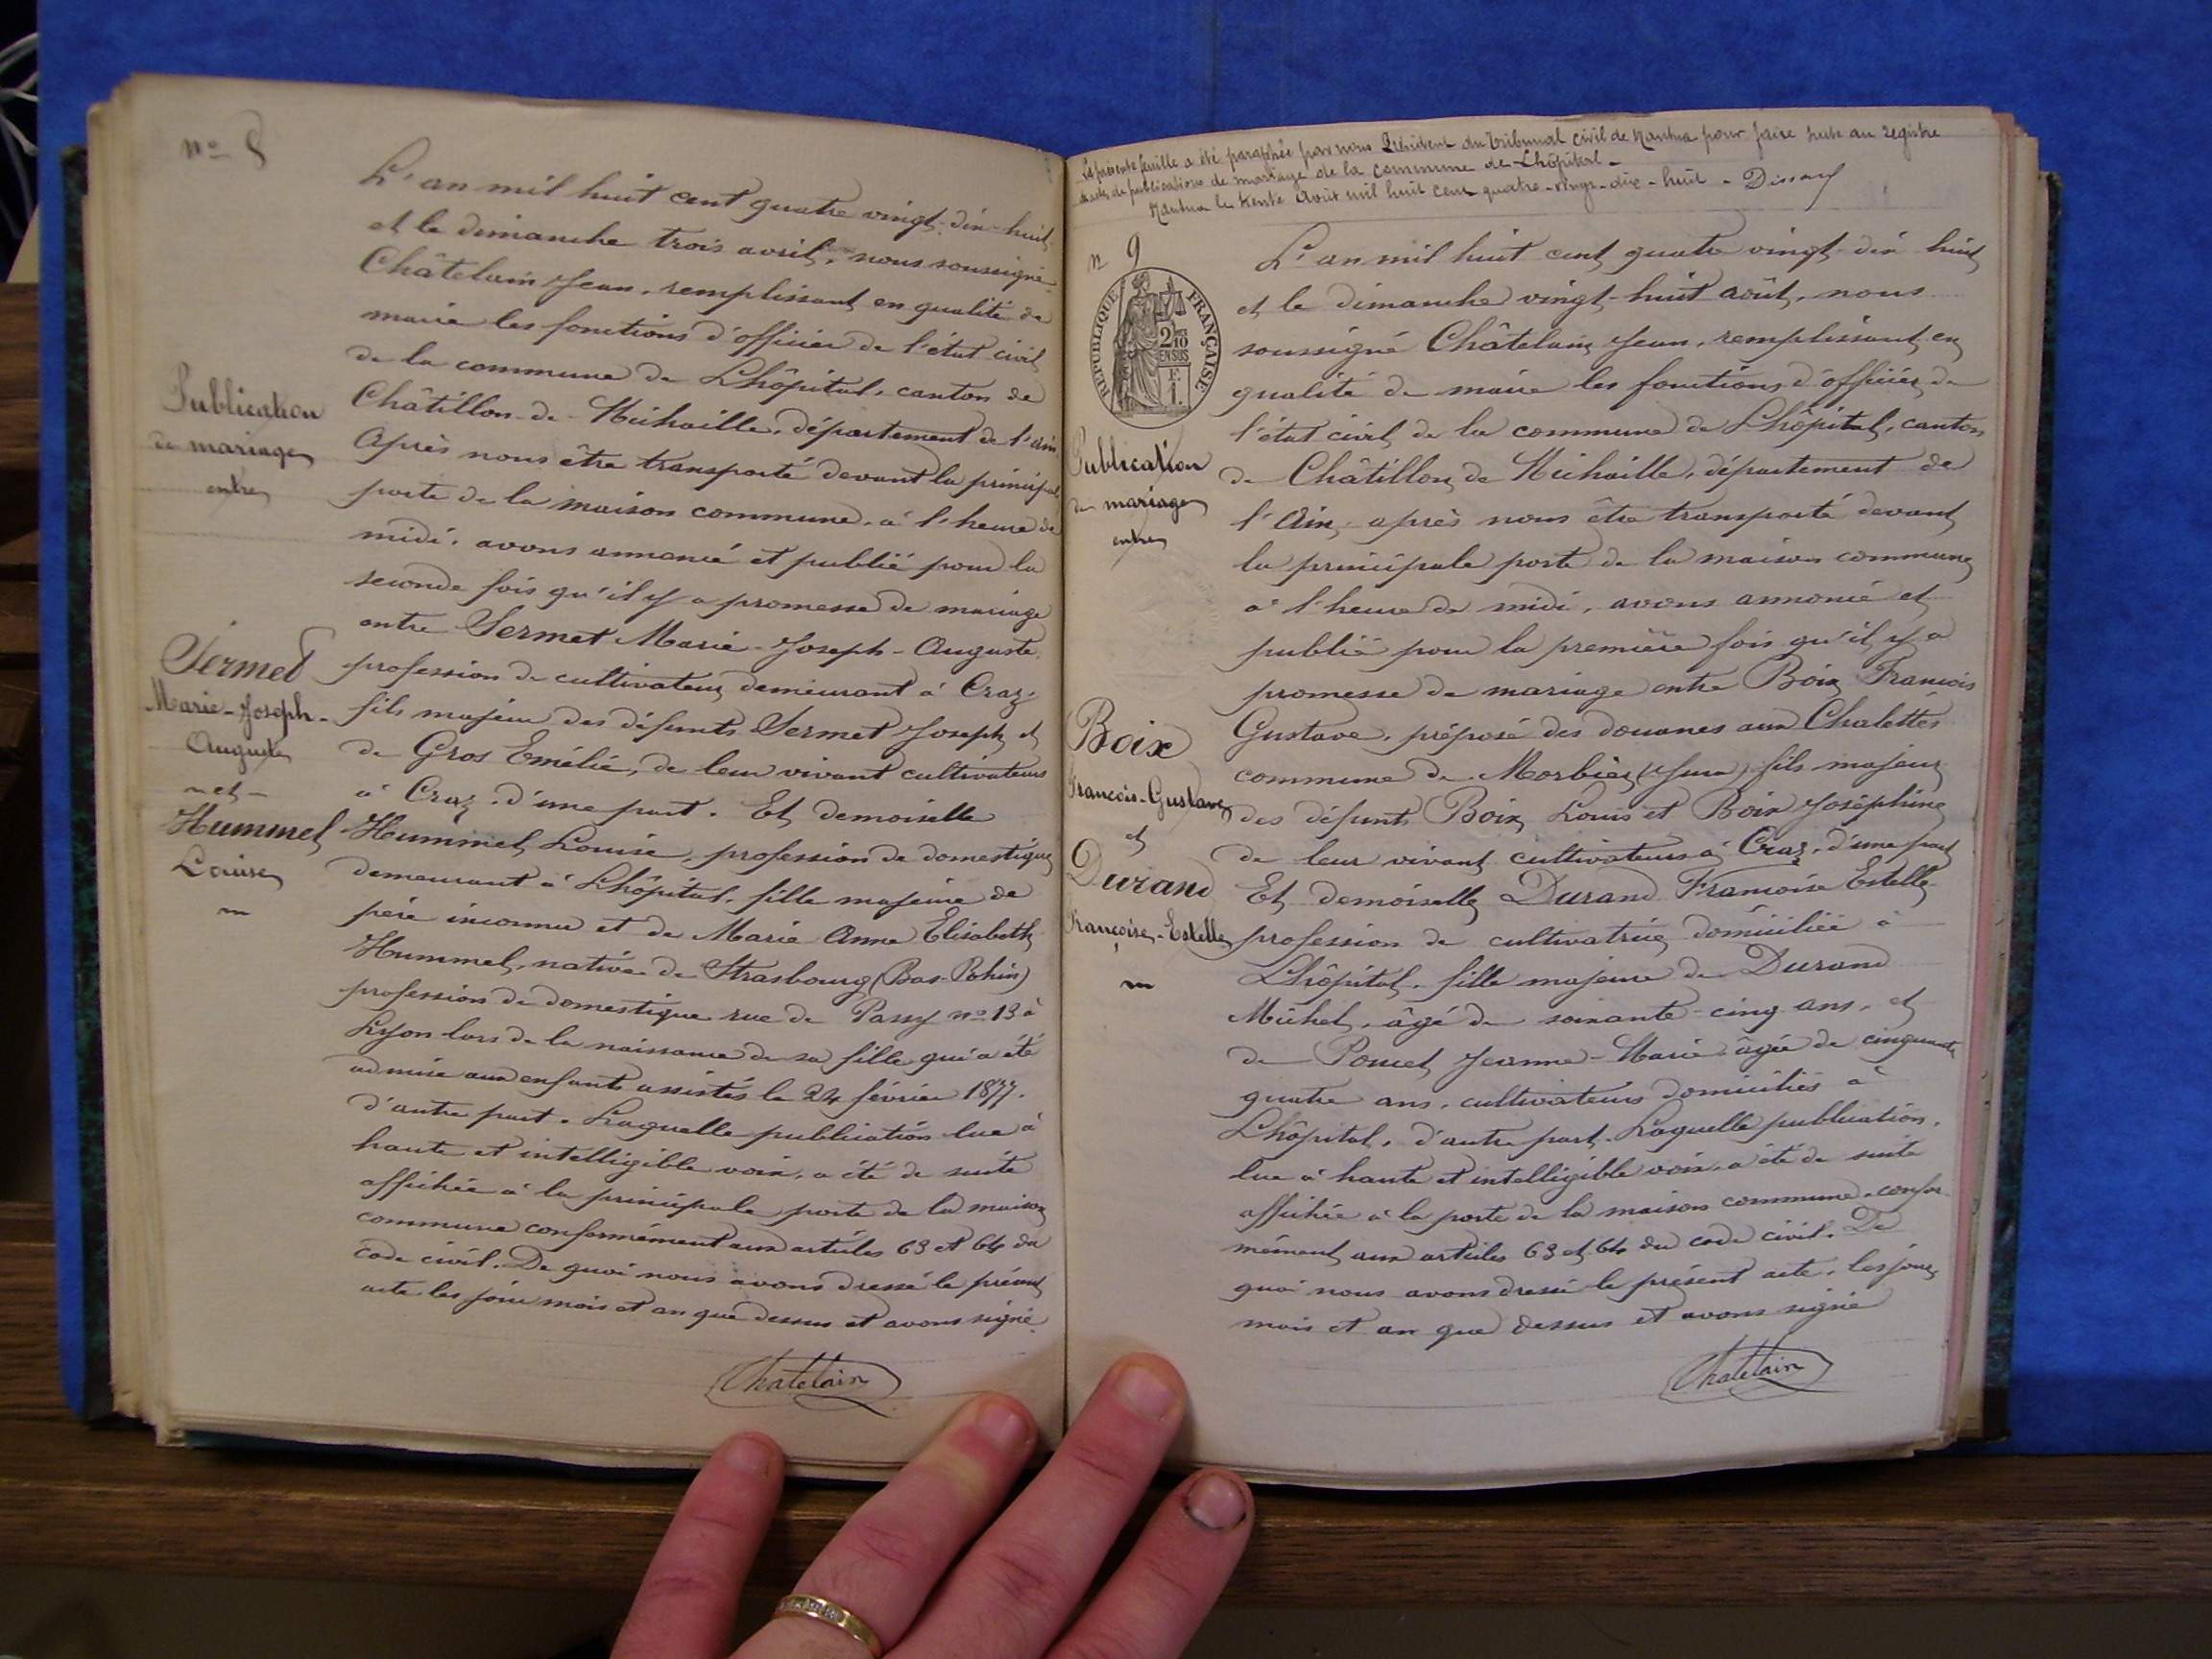 nº 8
L'an mil huit cent quatre vingt-dix-huit
et le dimanche trois avril, nous soussigné
Châtelain Jean, remplissant en qualité de
maire les fonctions d'officier de l'état civil
de la commune de Lhôpital, canton de
Châtillon-de-Michaille, département de l'Ain
Après nous être transporté devant la principale
porte de la maison commune, à l'heure de
midi, avons annoncé et publié pour la
seconde fois qu'il y a promesse de mariage
entre Sermet Marie-Joseph-Auguste,
profession de cultivateur demeurant à Craz,
fils majeur des défunts Sermet Joseph et
de Gros Emélie, de leur vivant cultivateurs
à Craz, d'une part. Et demoiselle
Hummel Louise, profession de domestique
demeurant à Lhôpital, fille majeure de
père inconnu et de Marie Anne Elisabeth
Hummel, native de Strasbourg (Bas-Rhin)
profession de domestique rue de Passy nº 13 à
Lyon lors de la naissance de sa fille qui a été
admise aux enfants assistés le 24 février 1877.
d'autre part. Laquelle publication lue à
haute et intelligible voix, a été de suite
affichée à la principale porte de la maison
commune conformément aux articles 63 et 64 du
code civil. De quoi nous avons dressé le présent
acte les jour mois et an que dessus et avons signé.
Chatelain
Publication
de mariage
entre
Sermet
Marie-Joseph-
Auguste
-et-
Hummel
Louise
La présente feuille a été paraphée par nous Président du Tribunal civil de Nantua pour faire suite au registre
des publications de mariage de la commune de Lhôpital.
Nantua le trente Août mil huit cent quatre-vingt-dix-huit.
n 9
RÉPUBLIQUE FRANÇAISE
2/10
EN SUS
1 F.
L'an mil huit cent quatre vingt-dix huit
et le dimanche vingt-huit août, nous
soussigné Châtelain Jean, remplissant en
qualité de maire les fonctions d'officier de
l'état civil de la commune de Lhôpital, canton
de Châtillon de Michaille, département de
l'Ain, après nous être transporté devant
la principale porte de la maison commune
à l'heure de midi, avons annoncé et
publié pour la première fois qu'il y a
promesse de mariage entre Boix François
Gustave, préposé des douanes aux Chalettes
commune de Morbier (Jura), fils majeur
des défunts Boix Louis et Boix Joséphine
de leur vivant cultivateurs à Craz, d'une part
Et demoiselle Durand Françoise Estelle
profession de cultivatrice domiciliée à
Lhôpital, fille majeure de Durand
Michel, âgé de soixante-cinq ans, et
de Poncet Jeanne-Marie âgée de cinquante
quatre ans, cultivateurs domiciliés à
Lhôpital, d'autre part. Laquelle publication,
lue à haute et intelligible voix, a été de suite
affichée à la porte de la maison commune, confor-
mément aux articles 63 et 64 du code civil. De
quoi nous avons dressé le présent acte, les jour,
mois et an que dessus et avons signé
Chatelain
Publication
de mariage
entre
Boix
François-Gustave
et
Durand
Françoise-Estelle